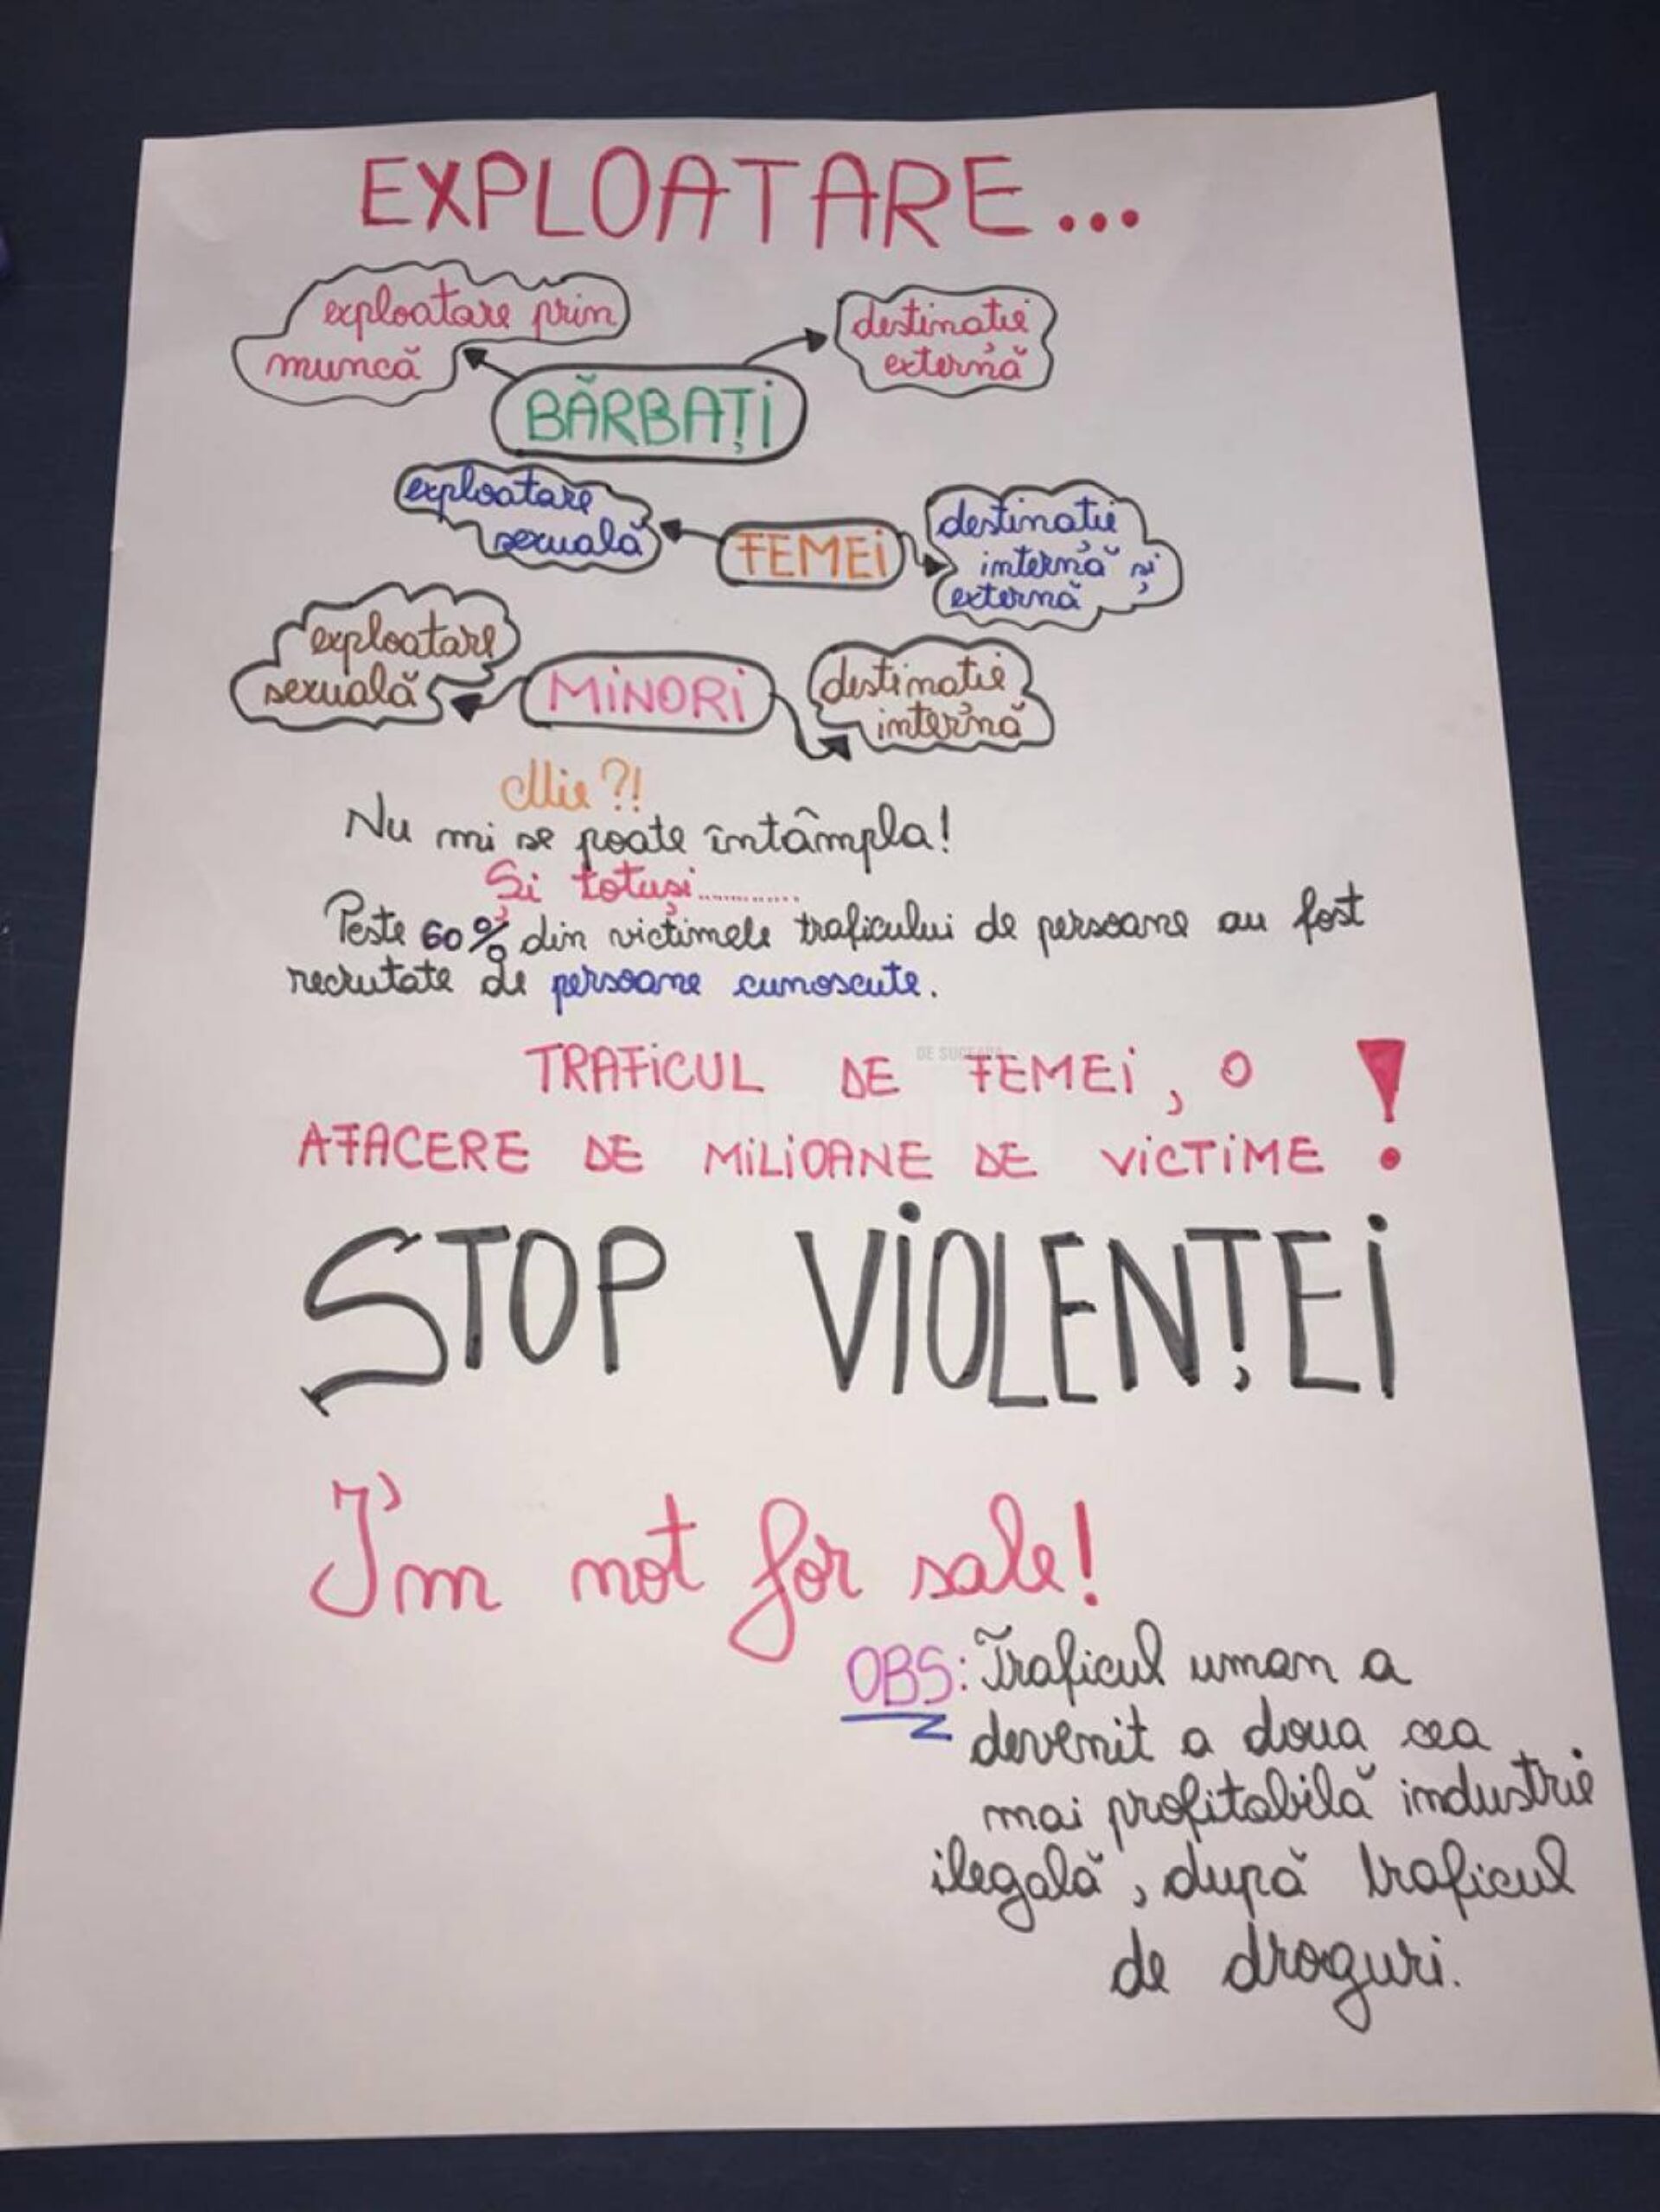 EXPLOATARE...
exploatare prin
muncă
destinație
externă
BĂRBAȚI
exploatare
sexuală
FEMEI
destinație
internă și
externă
exploatare
sexuală
MINORI
destinație
internă
Mie?!
Nu mi se poate întâmpla!
Și totuși............
Peste 60% din victimele traficului de persoane au fost
recrutate de persoane cunoscute.
DE SUCEAVA
TRAFICUL DE FEMEI, O
AFACERE DE MILIOANE DE VICTIME !
STOP VIOLENȚEI
I'm not for sale!
OBS: Traficul uman a
devenit a doua cea
mai profitabilă industrie
ilegală, după traficul
de droguri.